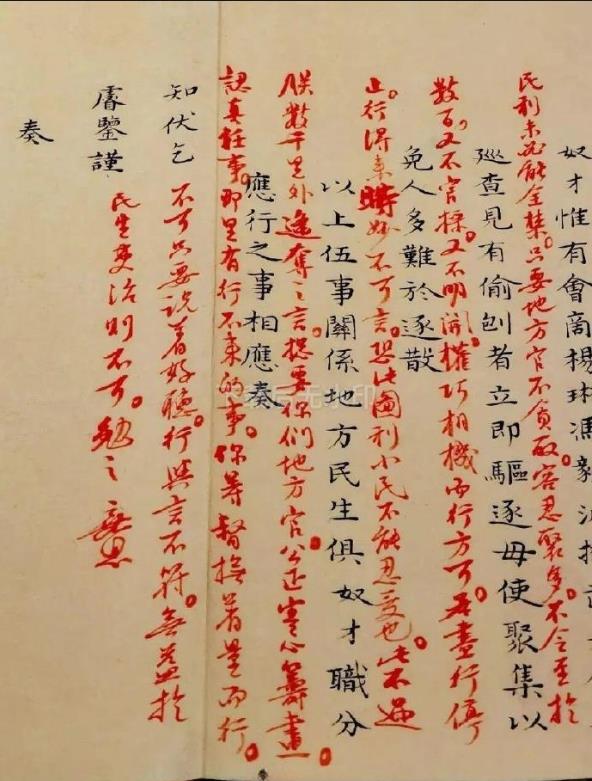 奴才惟有會商楊琳馮毅派
民利未必能全禁。只要地方官不貪取。容忍聚多。不令至於
巡查見有偷刨者立即驅逐毋使聚集以
数百。又不官採。又不明開。權巧相機而行方可。若盡行停
免人多難於逐散
止。行得来時妙不可言。恐此圖利小民不能忍受也。此不過
以上伍事關係地方民生俱奴才職分
朕数千里外遥奪之言。總要你們地方官公正寔心籌畫。
應行之事相應奏
認真任事。那里有行不来的事。你等督撫着量而行。
知伏乞
不可只要说着好聽。行與言不符。無益於
睿鑒謹
民生吏治则不可。勉之
奏